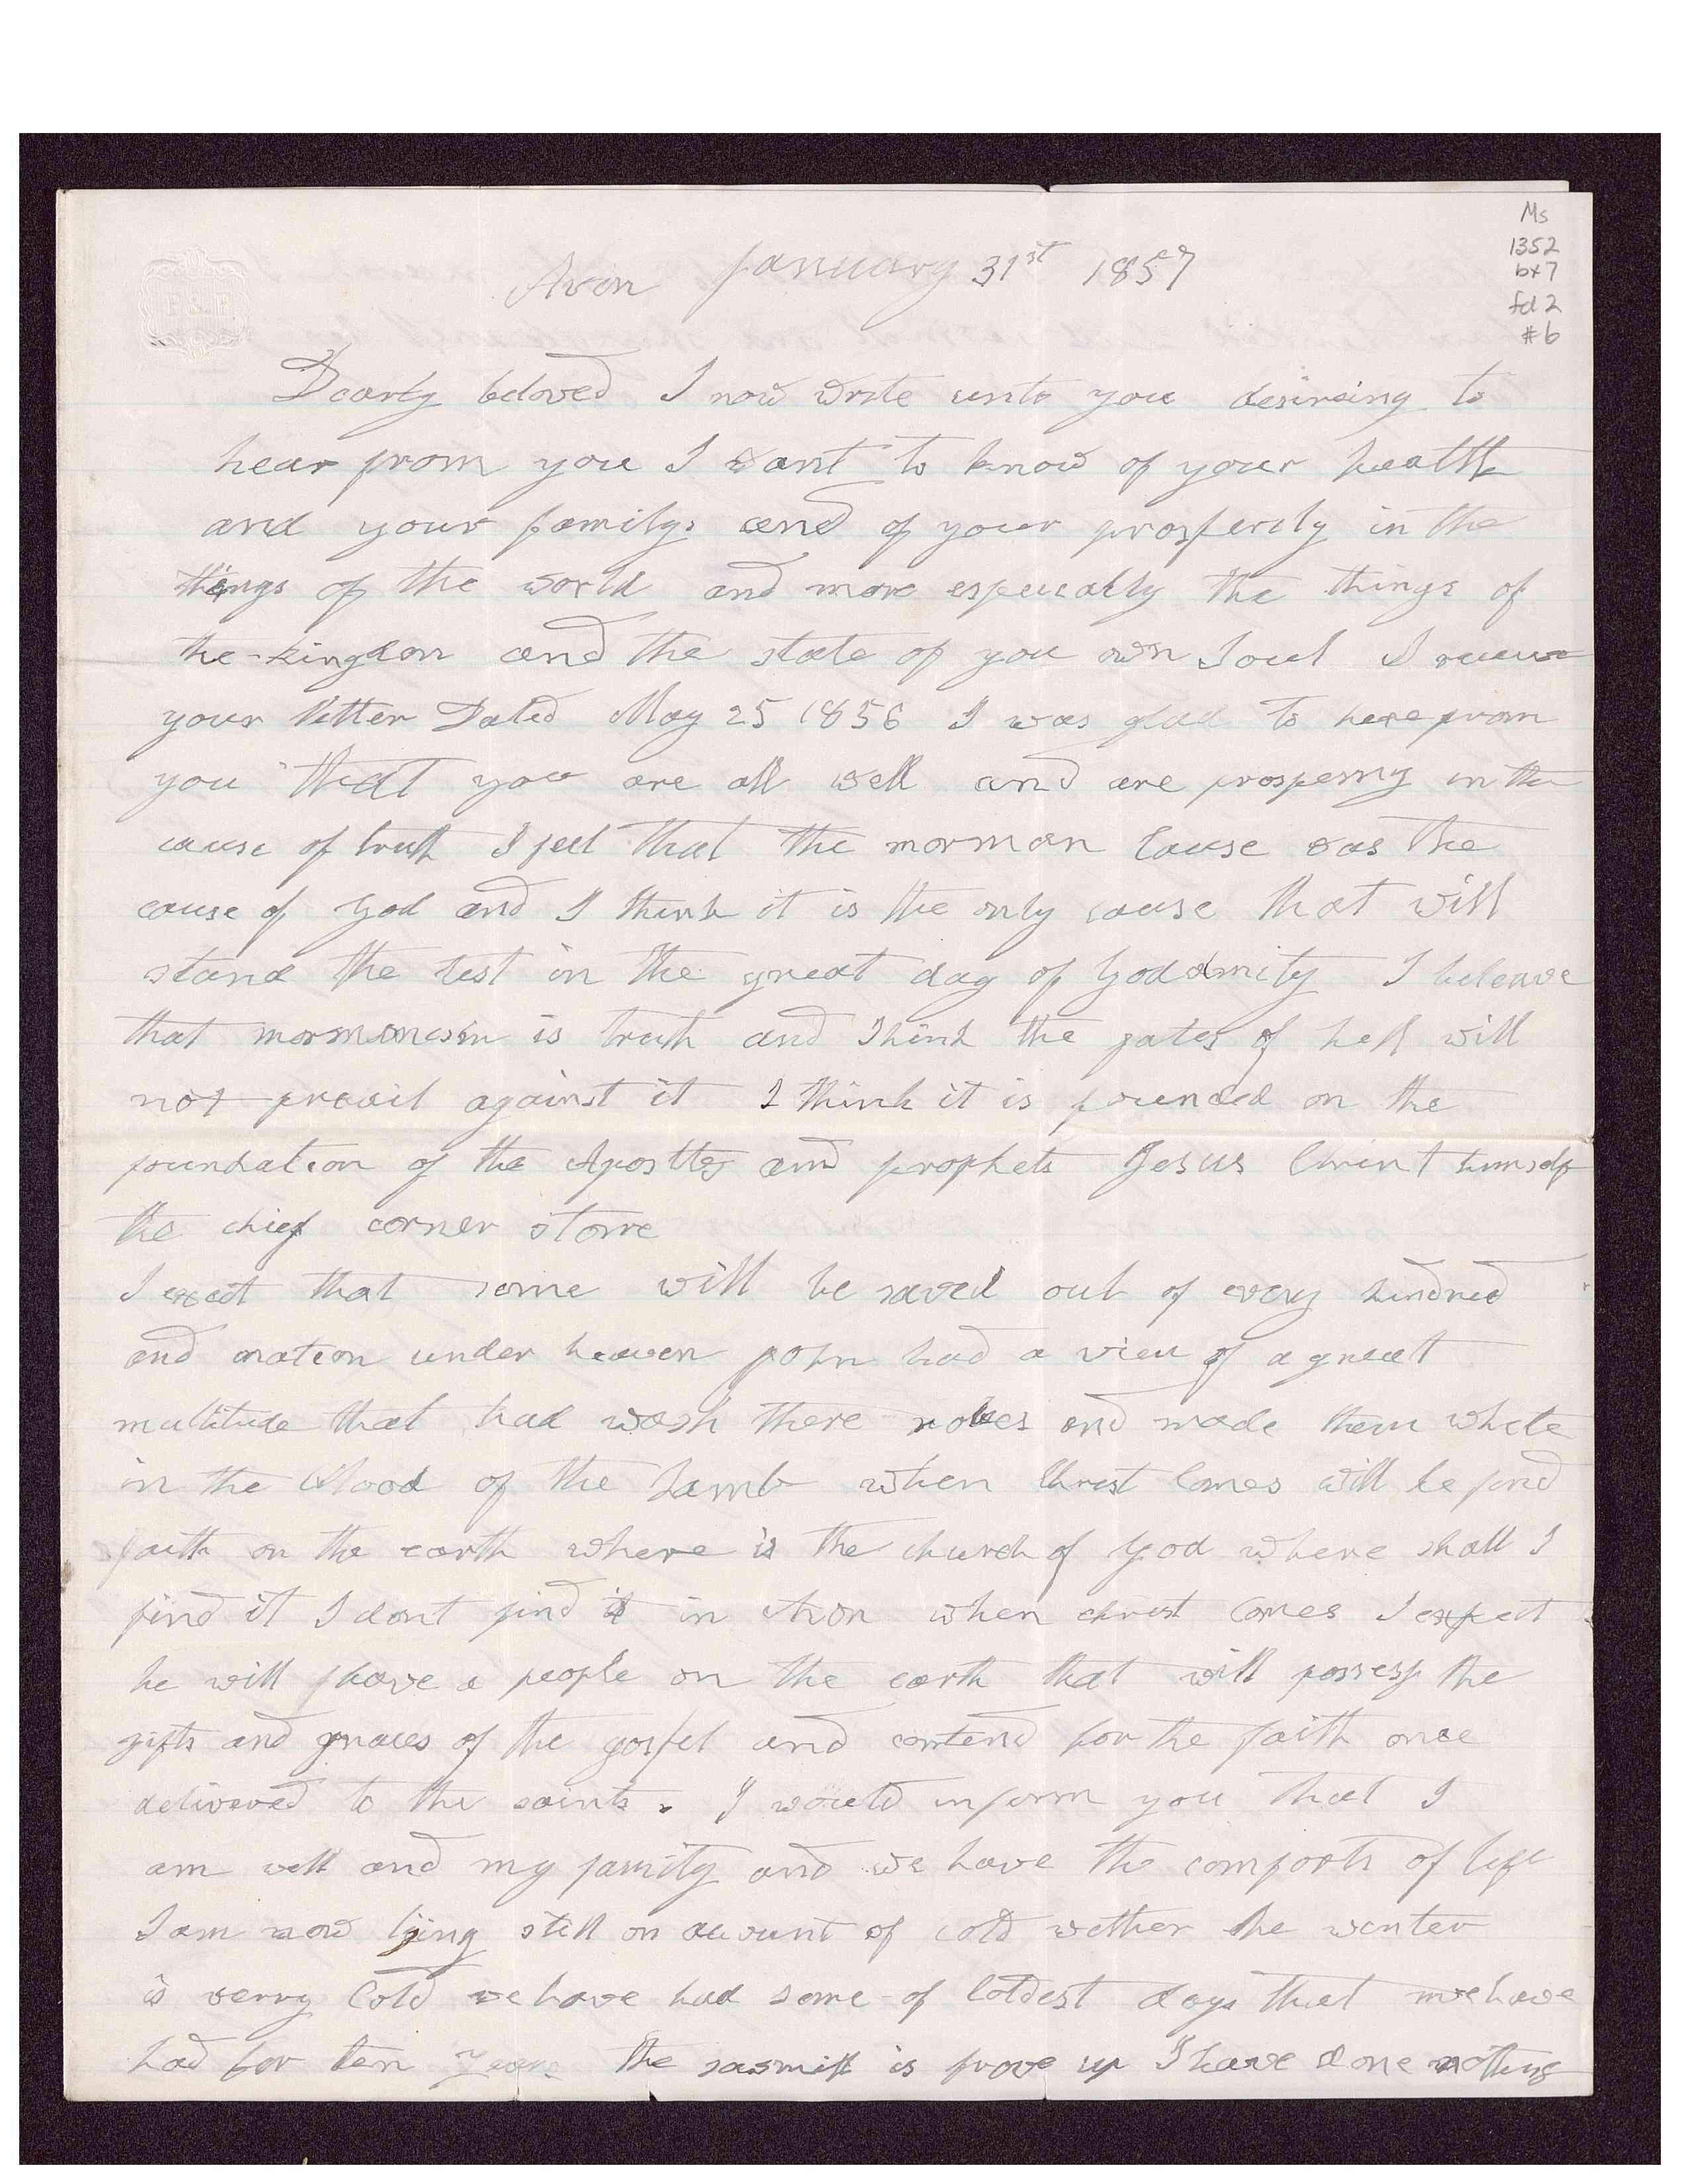 Ms
1352
bx7
fd 2
#6
F & F
Avon January 31st 1857
Dearly beloved I now write unto you desireing to
hear from you I want to know of your health
and your family: and of your prosperity in the
things of the world and more especeally the things of
the kingdon and the state of you own Soul I receive
your letter Dated May 25 1856 I was glad to here from
you that you are all well and are prospering in the
cause of truth I feel that the morman Cause was the
cause of God and I think it is the only cause that will
stand the test in the great day of God almity I beleave
that mormonesim is truth and I think the gates of hell will
not prevail against it I think it is founded on the
foundation of the Apostles and prophets Jesus Christ himself
the chief corner stone
I exect that some will be saved out of every kindred
and nateon under heaven John had a view of a great
multitude that had wash there robes and made them white
in the blood of the Lamb when Christ Comes will he find
faith on the earth where is the church of God where shall I
find it I dont find it in Avon when christ Comes I expect
he will have a people on the earth that will possess the
gifts and graces of the gospel and contend for the faith once
delivered to the saints. I would inform you that I
am well and my family and we have the comforts of life
I am now lying still on account of cold wether the winter
is verry Cold we have had some of Coldest days that we have
had for ten years the sawmill is froze up I have done nothing